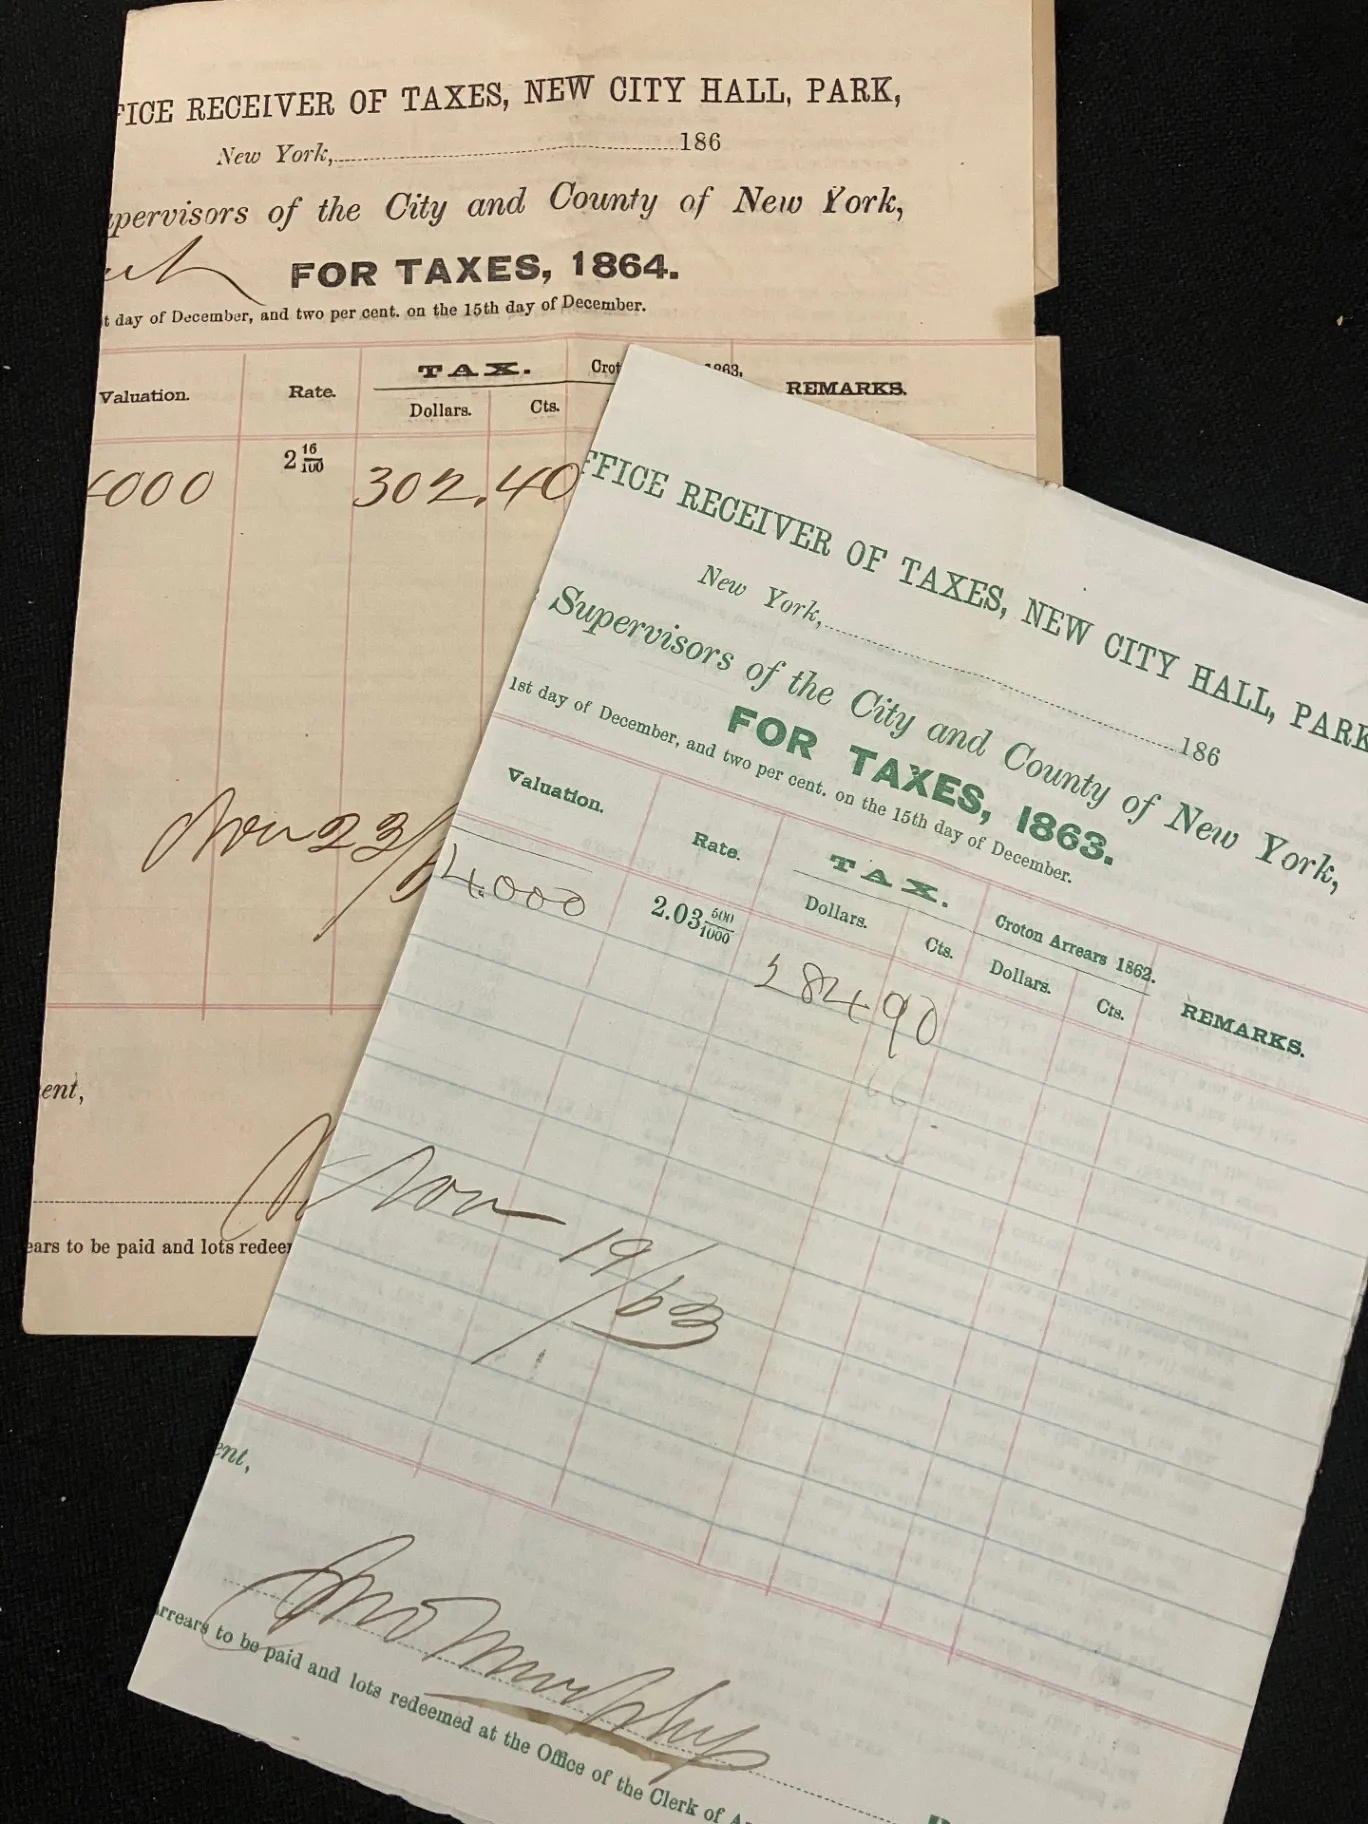 FFICE RECEIVER OF TAXES, NEW CITY HALL, PARK,
New York, 186
upervisors of the City and County of New York,
FOR TAXES, 1864.
t day of December, and two per cent. on the 15th day of December.
Valuation. Rate. TAX. Crot 1863. REMARKS.
Dollars. Cts.
4000 2 16/100 302.40
Nov 23/
ent,
ears to be paid and lots redeer
FFICE RECEIVER OF TAXES, NEW CITY HALL, PARK
New York, 186
Supervisors of the City and County of New York,
FOR TAXES, 1863.
1st day of December, and two per cent. on the 15th day of December.
Valuation. Rate. TAX. Croton Arrears 1862. REMARKS.
Dollars. Cts. Dollars. Cts.
14.000 2.03 500/1000 284 90
Nov 19/63
ent,
Jno Murphy
Arrears to be paid and lots redeemed at the Office of the Clerk of A